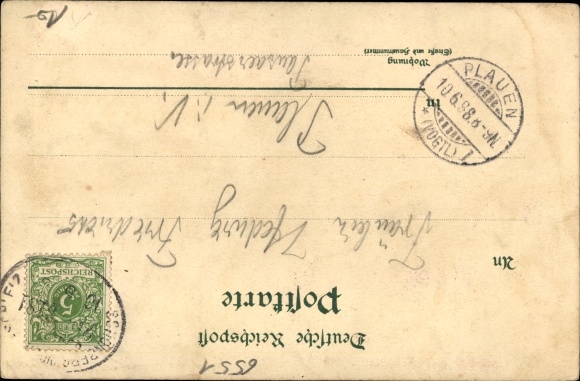 Deutsche Reichspost
Postkarte
An
Fräulein Hedwig
Friedrichs
in
Plauen i. V.
Wohnung
(Straße und Hausnummer)
Pausaerstrasse
PLAUEN
10.6.98.8-9N.
*(VOGTL) 1
REICHSPOST
5
6551
10-